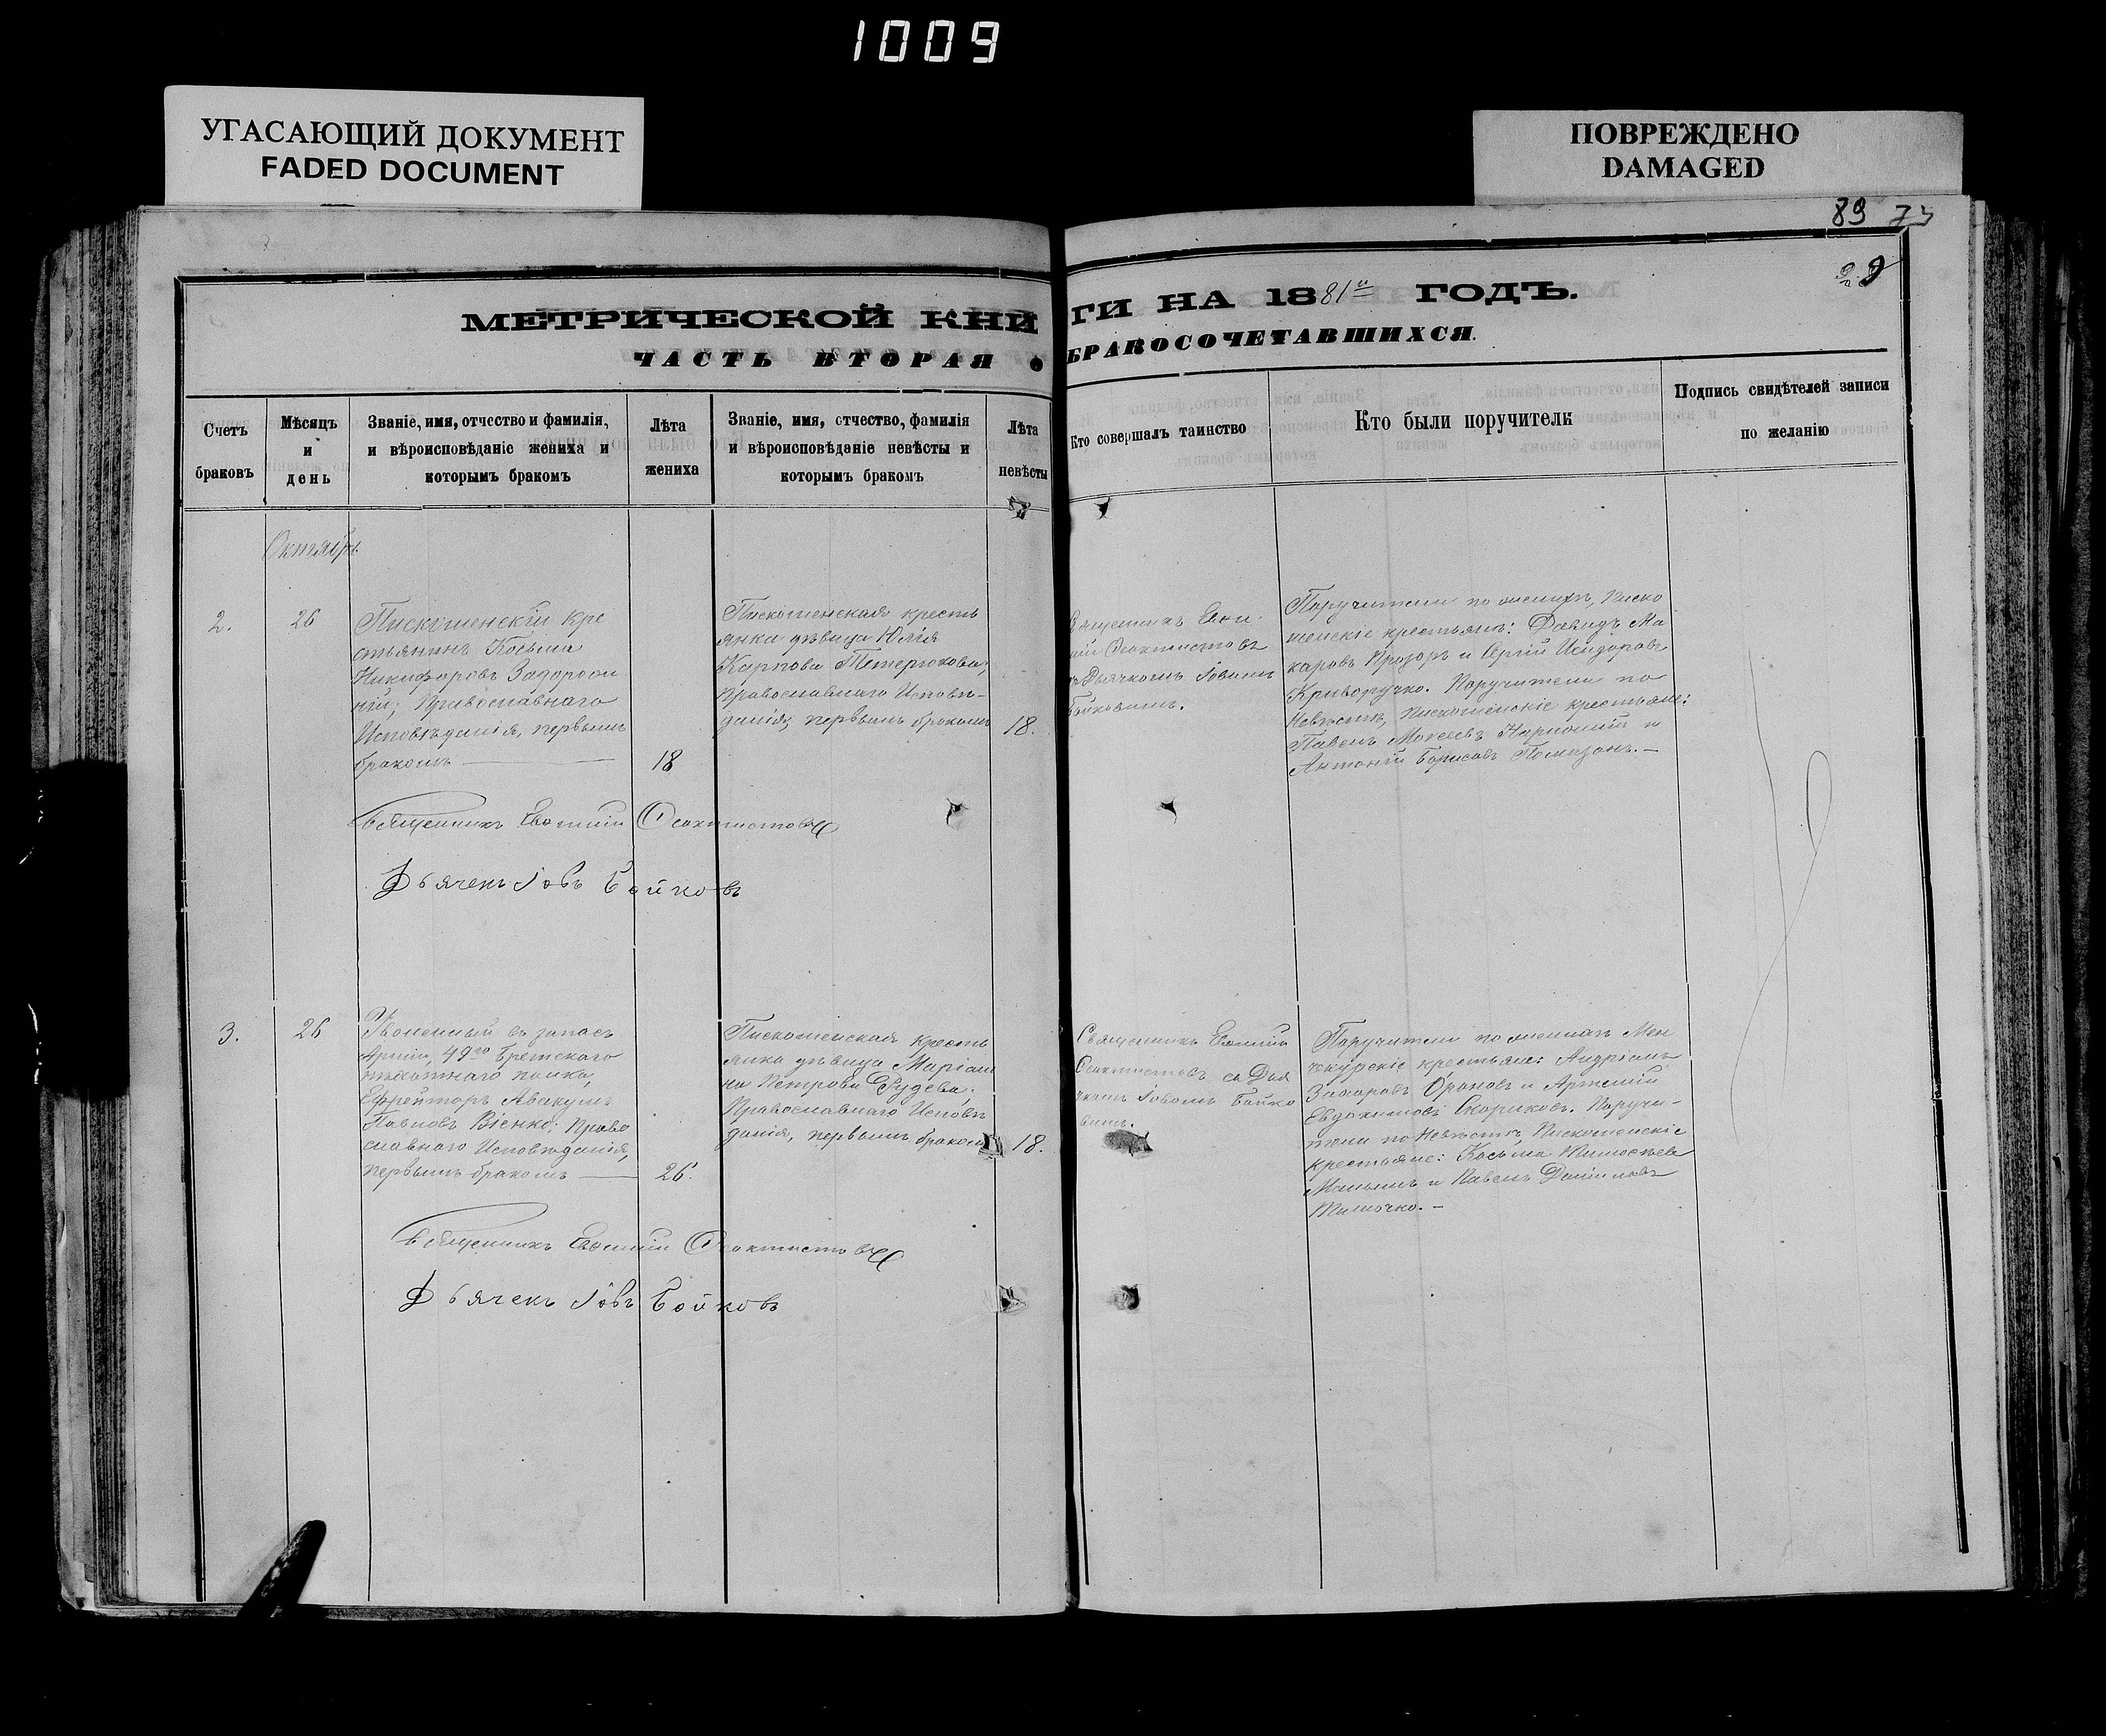 1009
УГАСАЮЩИЙ ДОКУМЕНТ
FADED DOCUMENT
ПОВРЕЖДЕНО
DAMAGED
89
МЕТРИЧЕСКОЙ КНИГИ НА 1881й ГОДЪ.
ЧАСТЬ ВТОРАЯ О БРАКОСОЧЕТАВШИХСЯ.
Счетъ браковъ
Мѣсяцъ и день
Званіе, имя, отчество и фамилія,
и вѣроисповѣданіе жениха и
которымъ бракомъ
Лѣта
жениха
Званіе, имя, отчество, фамилія
и вѣроисповѣданіе невѣсты и
которымъ бракомъ
Лѣта
невѣсты
Кто совершалъ таинство
Кто были поручители
Подпись свидѣтелей записи
по желанію
Октябрь
2.
26
Пискошенскій кре
стьянинъ Косьма
Никифоровъ Задорож
ный; Православнаго
Исповѣданія, первымъ
бракомъ
18
Пискошенская кресть
янка дѣвица Юлія
Карпова Тетерюкова;
Православнаго Исповѣ-
данія, первымъ бракомъ
18.
Священникъ
Ѳеоктистовъ
Дьячкомъ Іовомъ
Бойковымъ.
Поручители по женихѣ,Писко
шенскіе крестьяне: Давидъ Ма
каровъ Прозоръ и Сергій Исидоровъ
Криворучко. Поручители по
Невѣстѣ, Пискошенскіе крестьяне:
Павелъ Моѵсеевъ и
Антоній Борисовъ Помазанъ.-
Священникъ Евѳимій Ѳеоктистовъ
Дьячекъ Іовъ Бойковъ
3.
26
Уволенный въ запасъ
Арміи, 49го Брестскаго
пѣхотнаго полка,
Ефрейторъ Авакумъ
Павловъ Віенко; Право
славнаго Исповѣданія,
первымъ бракомъ
26.
Пискошенская кресть
янка дѣвица Маріам
на Петрова Рудева;
Православнаго Исповѣ
данія, первымъ бракомъ
18.
Священникъ Евѳимій
Ѳеоктистовъ съ Дья
чкомъ Іовомъ Бойко
вымъ.
Поручители по женихѣ Мен
чекурскіе крестьяне: Андріанъ
Захаровъ и Артемій
Евдокимовъ Скориковъ. Поручи-
тели по Невѣстѣ, Пискошенскіе
крестьяне: Косьма Тимоѳеевъ
и Павелъ Даніиловъ
Тимочко.-
Священникъ Евѳимій Ѳеоктистовъ
Дьячекъ Іовъ Бойковъ